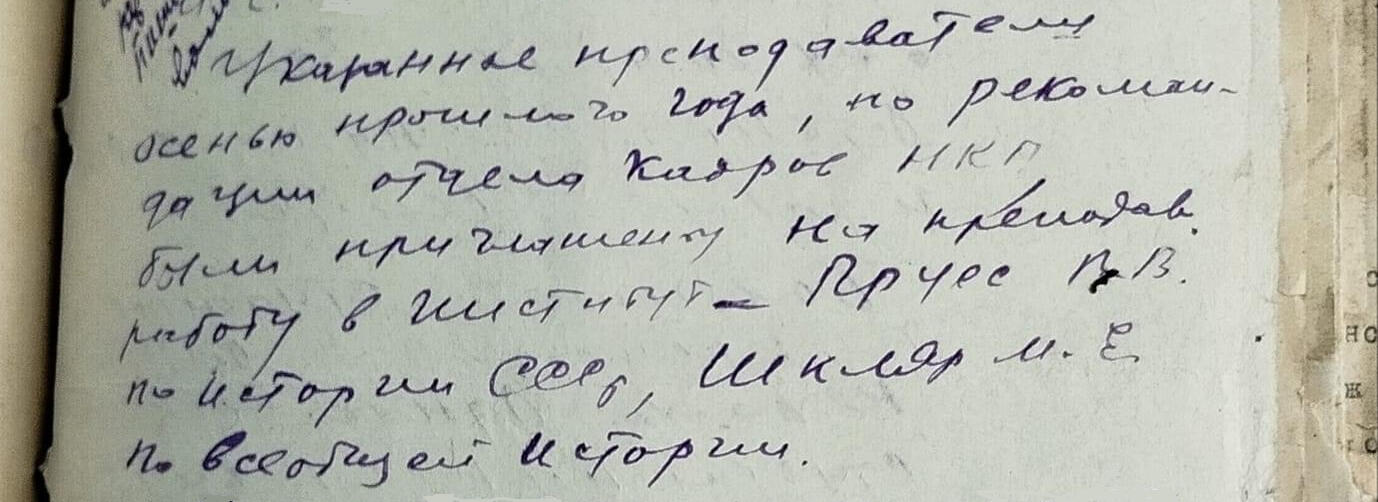 Указанные преподаватели
осенью прошлого года, по рекомен-
дации отдела Кадров НКП
были приглашены на преподав.
работу в Институт – Пруес В.В.
по Истории СССР, Шкляр М. Е.
по всеобщей Истории.